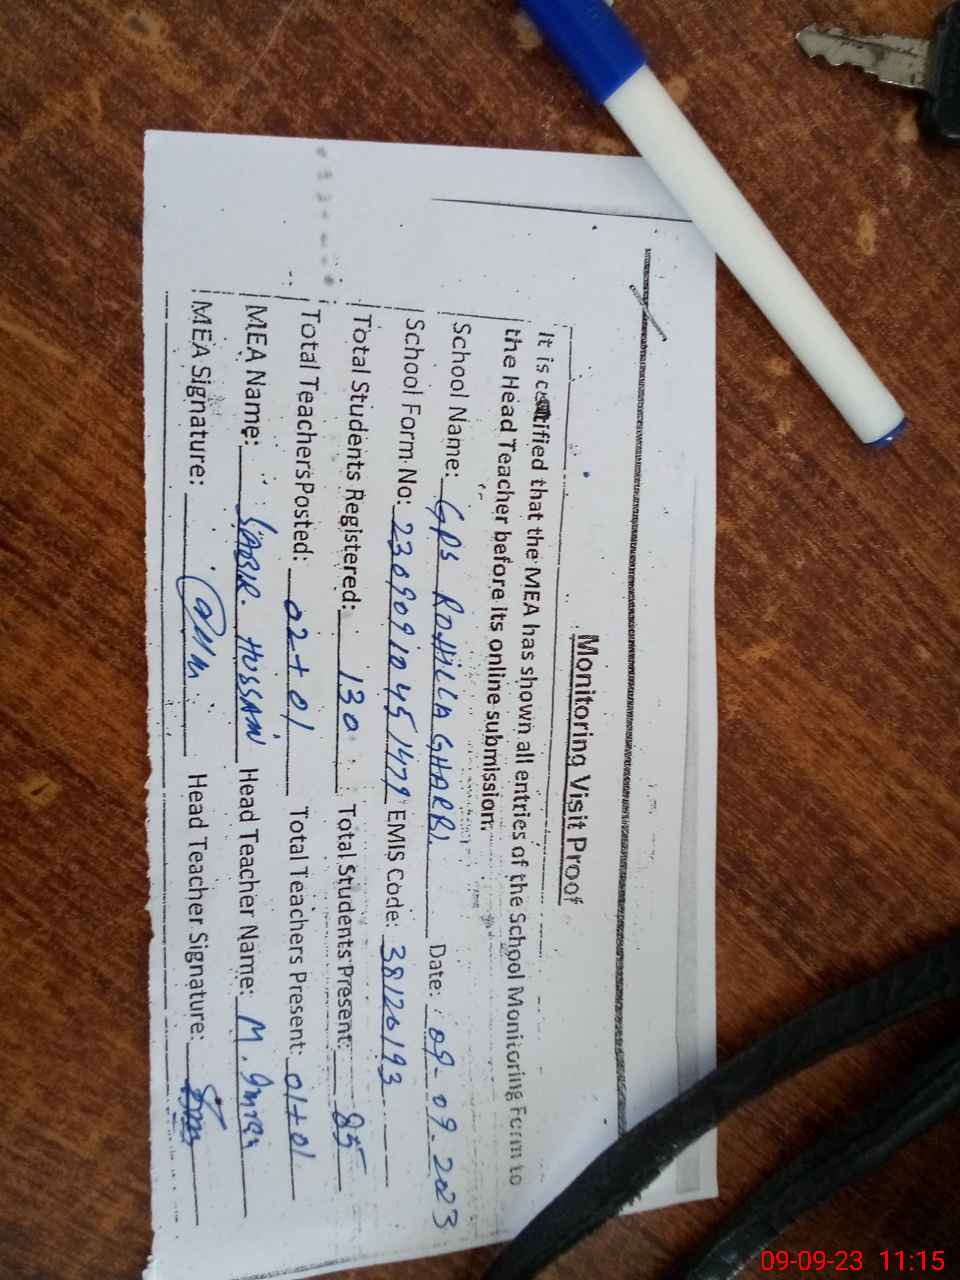 Monitoring Visit Proof
It is certified that the MEA has shown all entries of the School Monitoring Form to
the Head Teacher before its online submission.
School Name: GPS ROHILLA GHARBI. Date: 09-09-2023
School Form No: 23090910451479 EMIS Code: 38120193
Total Students Registered: 130 Total Students Present: 85
Total Teachers Posted: 02+01 Total Teachers Present: 01+01
MEA Name: SABIR. HUSSAIN Head Teacher Name: M. Imran
MEA Signature: Head Teacher Signature:
09-09-23 11:15